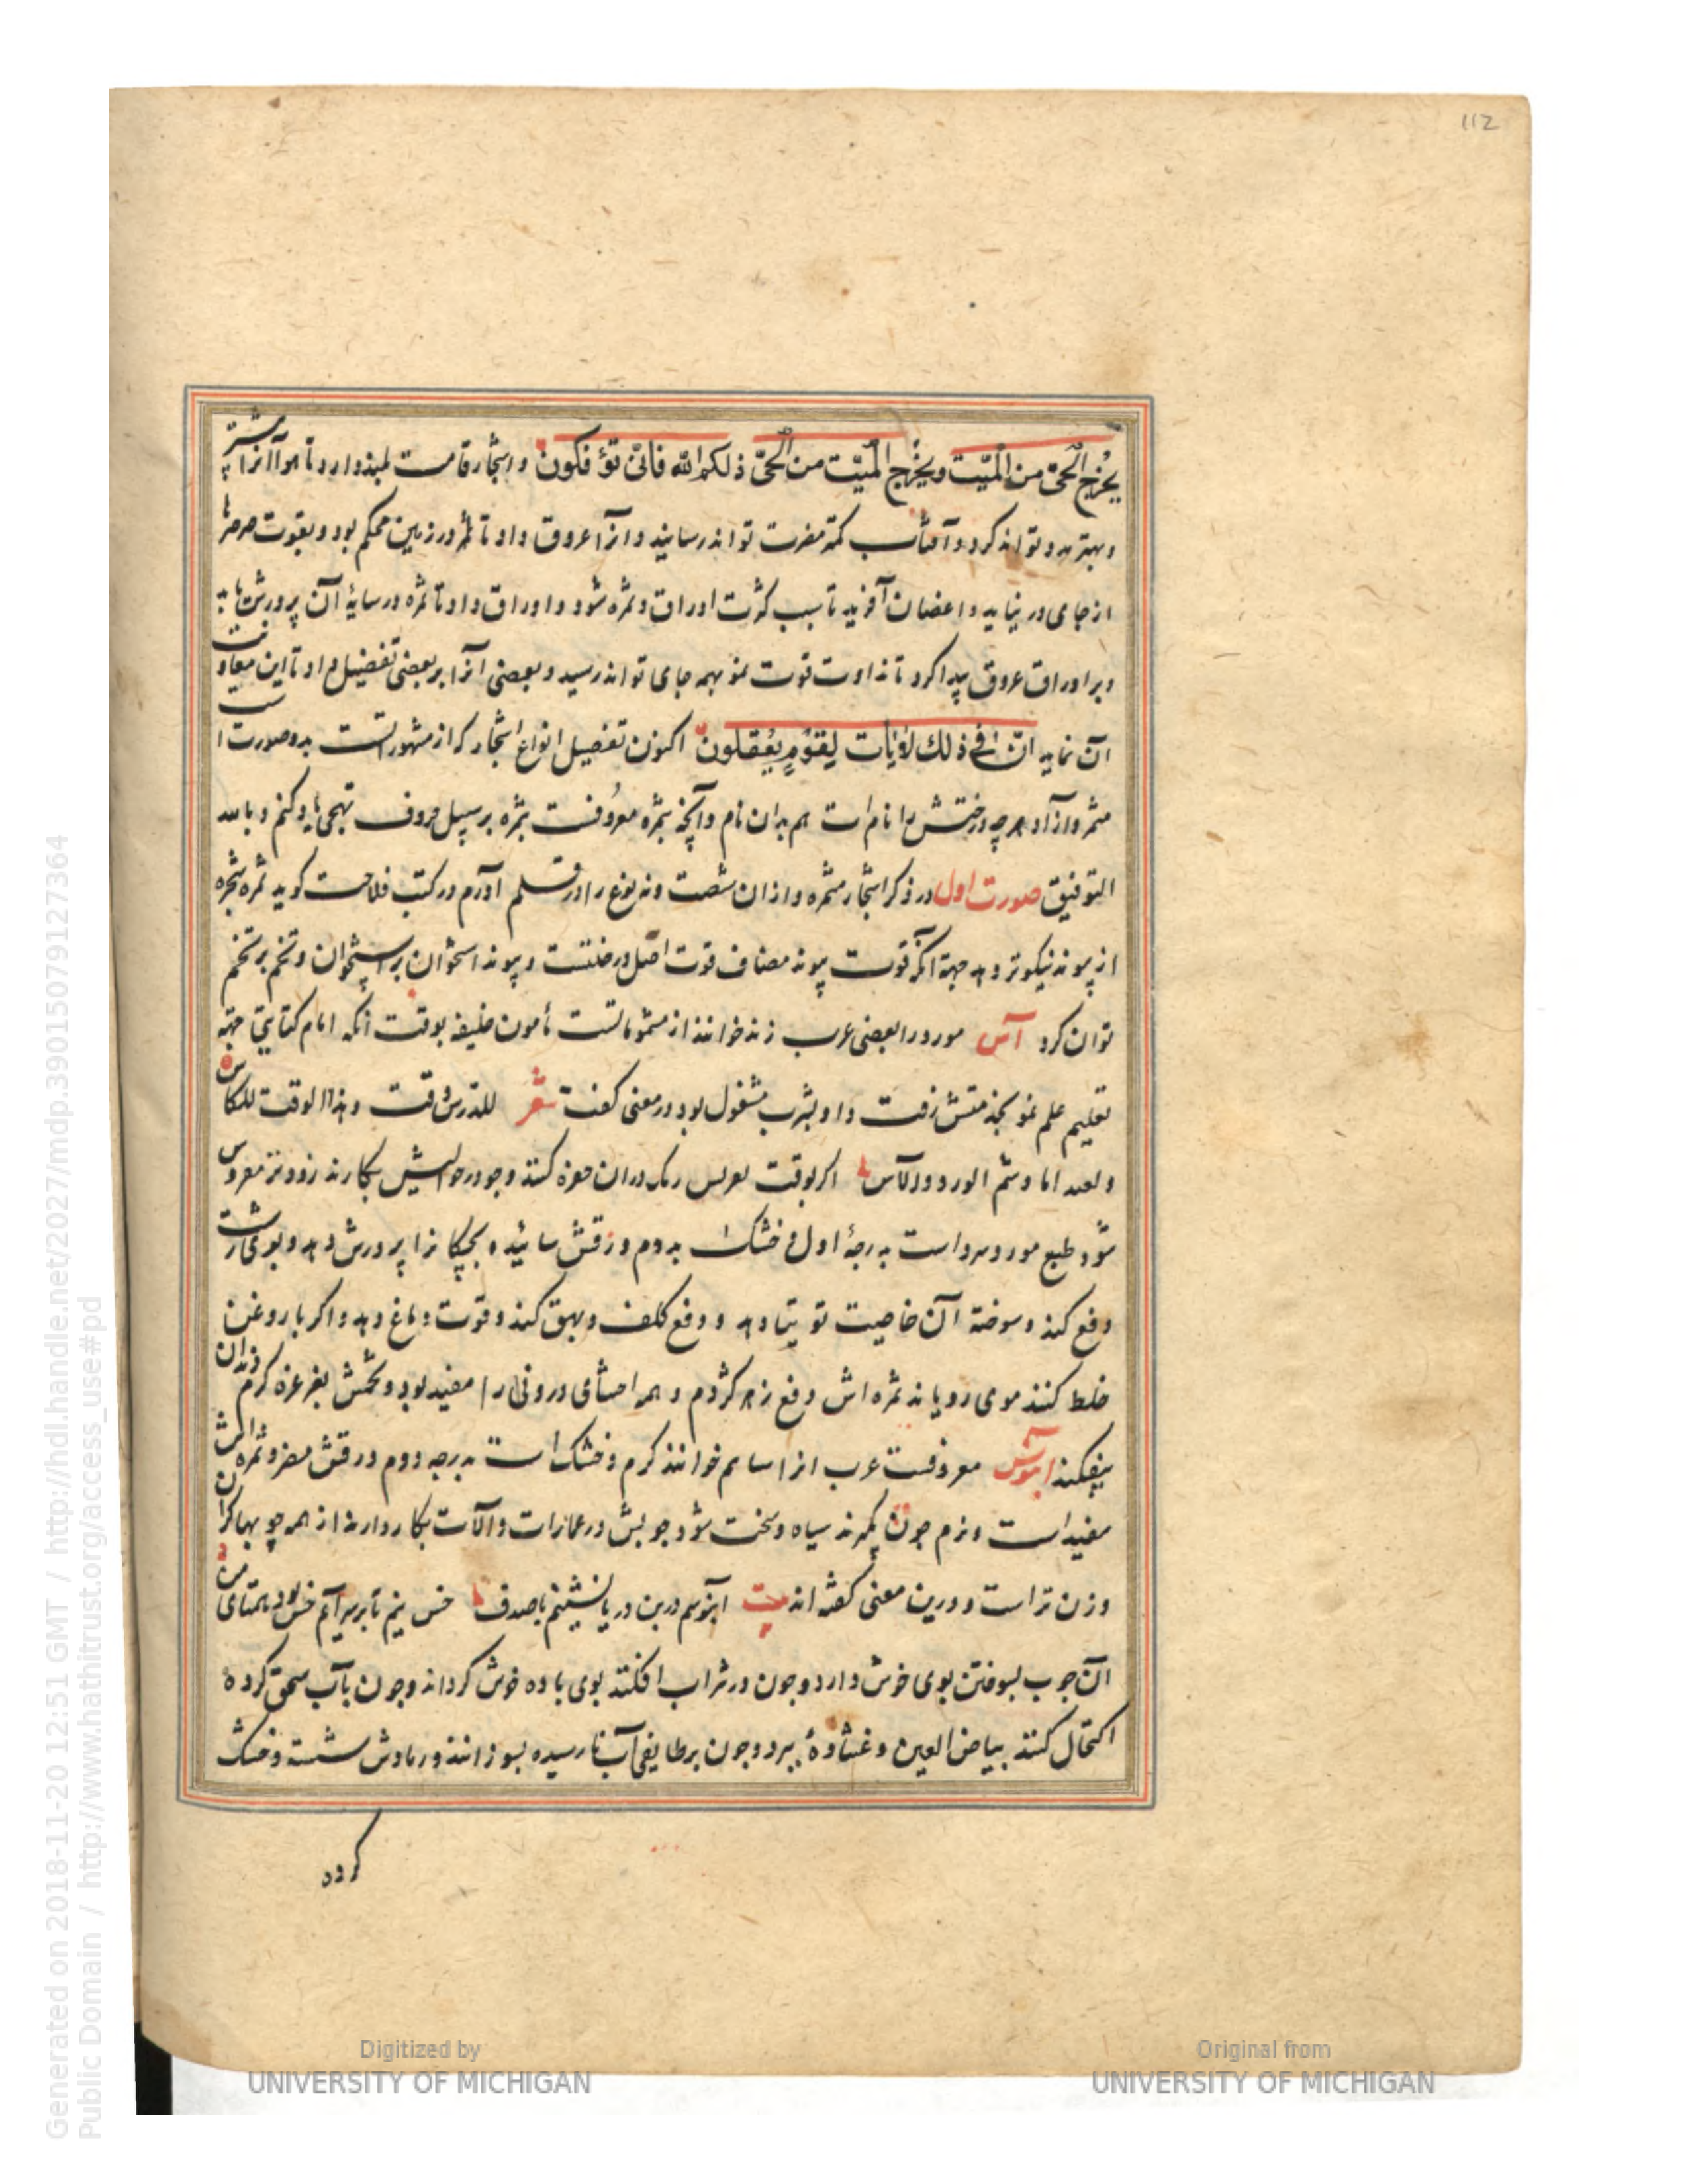 112
یُخرِج الحیّ من المیّت ویُخرج المیّت من الحیّ ذلکم الله فانّی تؤفکون و اشجار قامت بلند داد تا هوا آنرا بیشتر
و بهتر مدد تواند کرد و آفتاب کمتر مضرت تواند رسانید و انرا عروق داد تا در زمین محکم بود و بقوت صرصرها
از جای در نیاید و اغصان آفرید تا سبب کثرت اوراق و ثمره شود و اوراق داد تا ثمره در سایهٔ آن پرورش یابد
و بر اوراق عروق پیدا کرد تا نداوت قوت نمو بهمه جای تواند رسید و بعضی انرا بر بعضی تفضیل داد تا این معاونت
آن نماید انّ فی ذلك لآیات لقومٍ یعقلون اکنون تفصیل انواع اشجار که از مشهوراتست بدو صورت است
مثمر و ازاد هرچه درختش را نام است هم بدان نام و آنچه بثمره معروفست بثمره بر سبیل حروف تهجی یاد کنم و بالله
التوفیق صورت اول در ذکر اشجار مثمره و از ان شصت و نه نوع را در قلم اورم در کتب فلاحت کوید ثمره شجره
از پیوند نیکوتر دهد جهة آنکه قوت پیوند مضاف قوت اصل درختست و پیوند استخوان بر استخوان و تخم بر تخم
توان کرد آس مورد را بعضی عرب زند خوانند از مشموماتست مأمون خلیفه بوقت آنکه امام کتابتی جهته
تعلیم علم نحو بخدمتش رفت و او بشرب مشغول بود در معنی کفت شعر للدرس وقت و هذا الوقت للکاس
و شم الورد والآس اکر بوقت دران حفره کنند و جو در حوالیش بکارند زودتر معروس
شود طبع مورد سرد است بدرجهٔ اول و خشک بدوم ورقش سائیده بچکانرا پرورش دهد و بوی زشت
دفع کند و سوخته آن خاصیت توتیا دهد و دفع کلف و بهق کند و قوت دماغ دهد و اکر با روغن
خلط کنند موی رویاند ثمره اش دفع زهر کژدم و همه احشای درونی را مفید بود و تخمش بغرغره کرم دندان
بیفکند ابنوس معروفست عرب انرا ساسم خوانند کرم و خشک است بدرجه دوم ورقش مضر و ثمره اش
مفید است و نرم چون بکهرند سیاه و سخت شود چوبش در عمارات و آلات بکار دارند از همه چوبها کران
وزن تر است و درین معنی کفته اند بیت ابنوسم در بن دریا نشینم با صدف خس نیم تا بر سر آیم خس بود همتای من
آن چوب بسوختن بوی خوش دارد و چون در شراب افکنند بوی باده خوش کرداند و چون بآب سحق کرده
اکتحال کنند بیاض العین و غشاوهٔ ببرد و چون بر طابقی آب نارسیده بسوزانند و رمادش شسته و خشک
کرده
Generated on 2018-11-20 12:51 GMT / http://hdl.handle.net/2027/mdp.39015079127364
Public Domain / http://www.hathitrust.org/access_use#pd
Digitized by
UNIVERSITY OF MICHIGAN
Original from
UNIVERSITY OF MICHIGAN